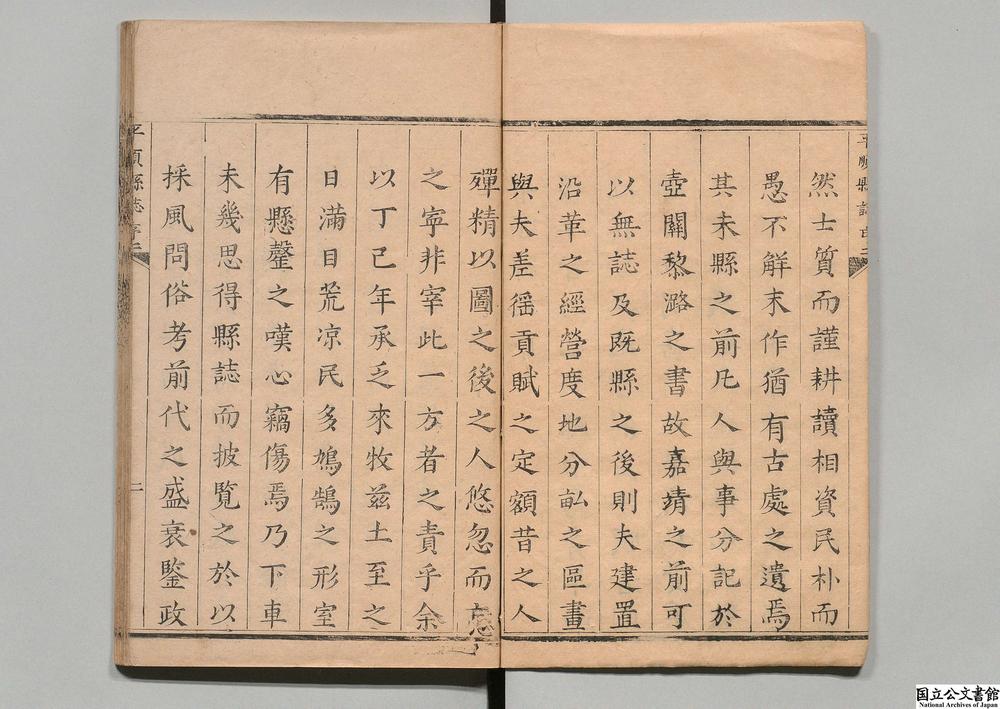 然士質而謹耕讀相資民朴而
愚不解末作猶有古處之遺焉
其未縣之前凡人與事分記於
壺關黎潞之書故嘉靖之前可
以無誌及既縣之後則夫建置
沿革之經營度地分畝之區畫
與夫差徭貢賦之定額昔之人
殫精以圖之後之人悠忽而忘
之寜非宰此一方者之責乎余
以丁已年承乏來牧兹土至之
日滿目荒凉民多鳩鵠之形室
有懸罄之嘆心竊傷焉乃下車
未幾思得縣誌而披覧之於以
採風問俗考前代之盛衰鑒政
平順縣志 序 二
二
国立公文書館
National Archives of Japan